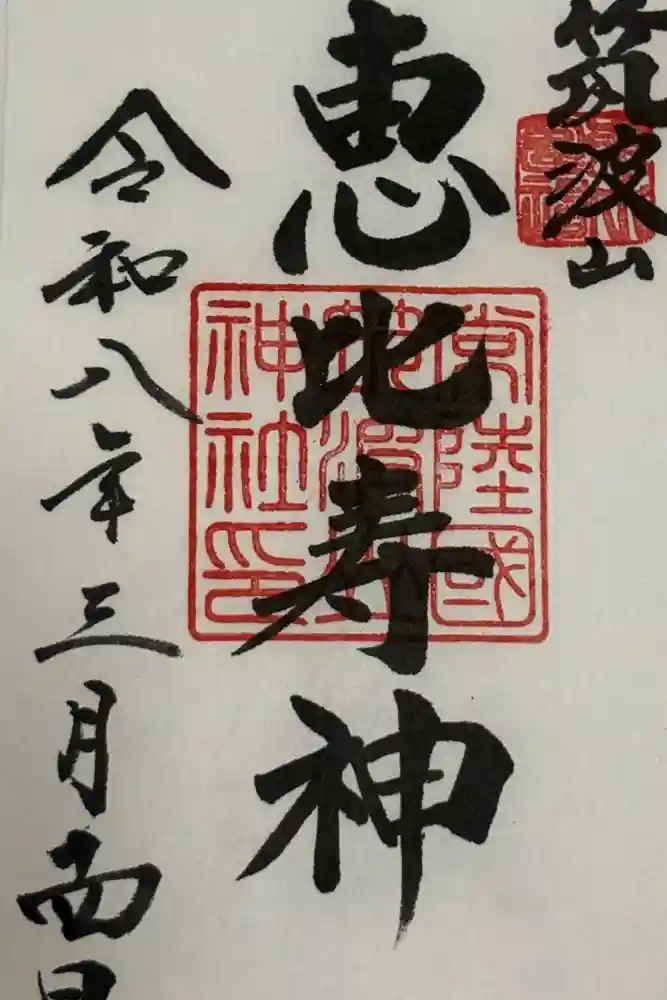 筑波山
恵比寿神
常陸國
筑波山
神社印
令和八年三月四日